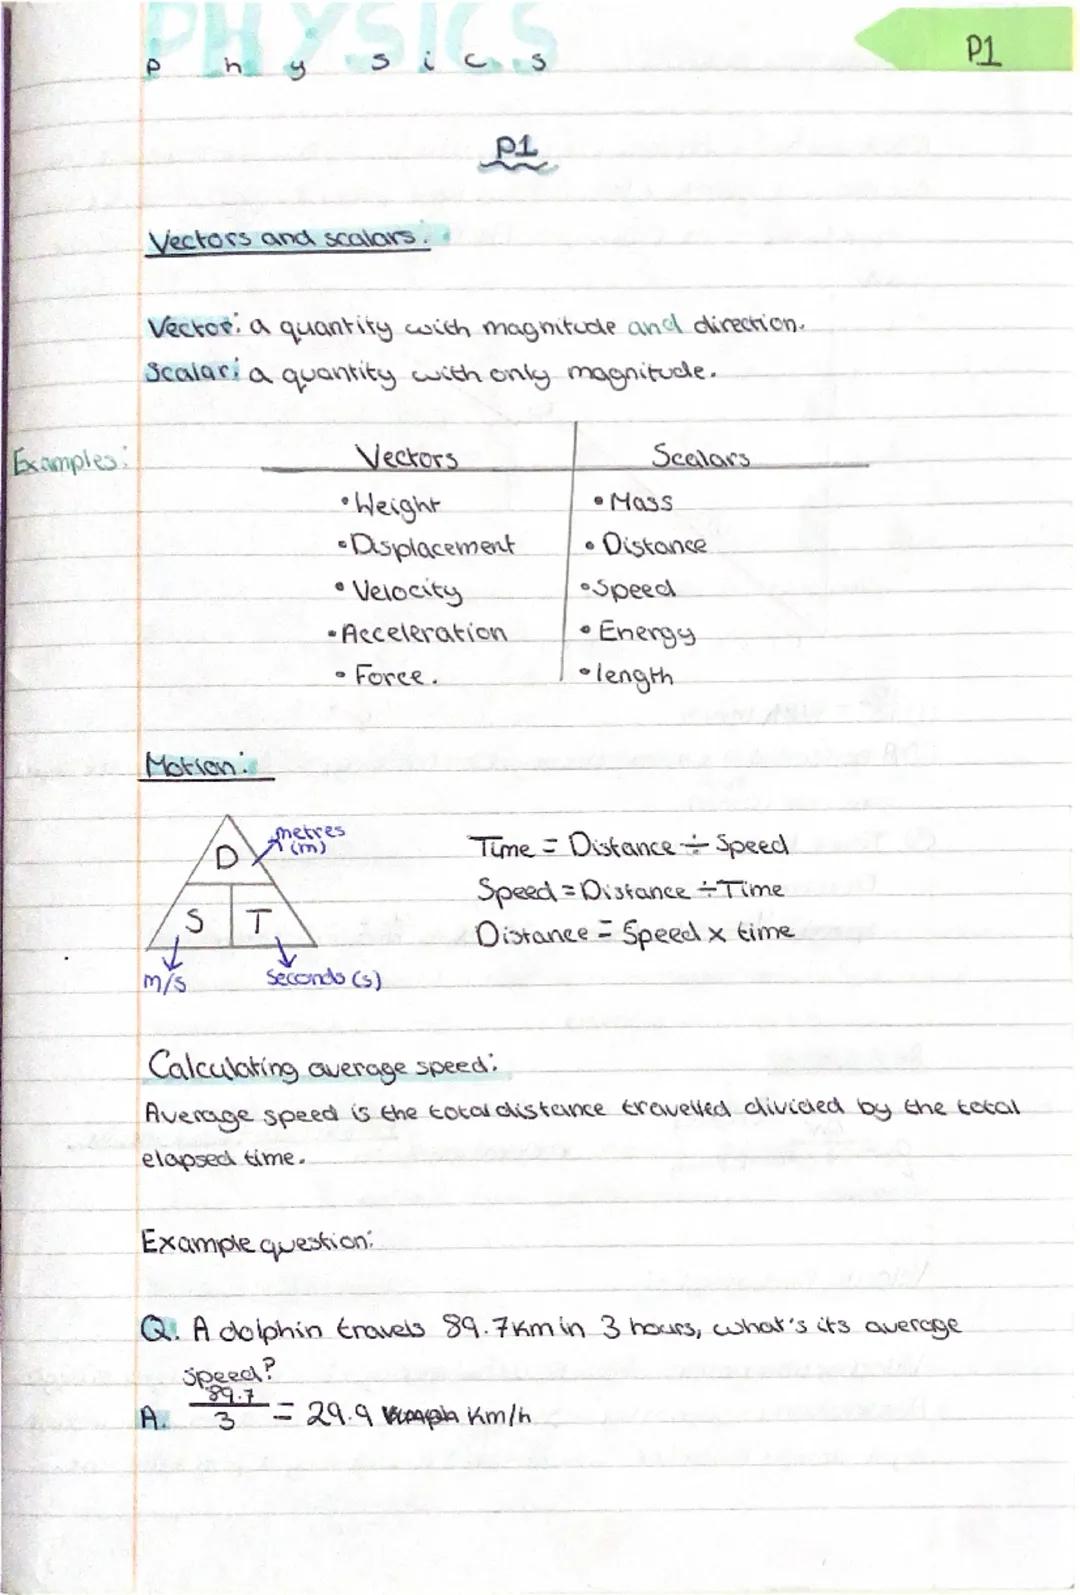 PHYSICS
Physics
P1
P1
Vectors and scalars.
Vector: a quantity with magnitude and direction.
Scalar: a quantity with only magnitude.
Examples:
Vectors Scalars
• Weight • Mass
• Displacement • Distance
• Velocity • Speed
• Acceleration • Energy
• Force. • length
Motion:
D metres
(m)
S T
m/s Seconds (s)
Time = Distance ÷ Speed
Speed = Distance ÷ Time
Distance = Speed x time
Calculating average speed:
Average speed is the total distance travelled divided by the total
elapsed time.
Example question:
Q. A dolphin travels 89.7km in 3 hours, what's its average
speed?
A. 89.7
3 = 29.9 Km/h